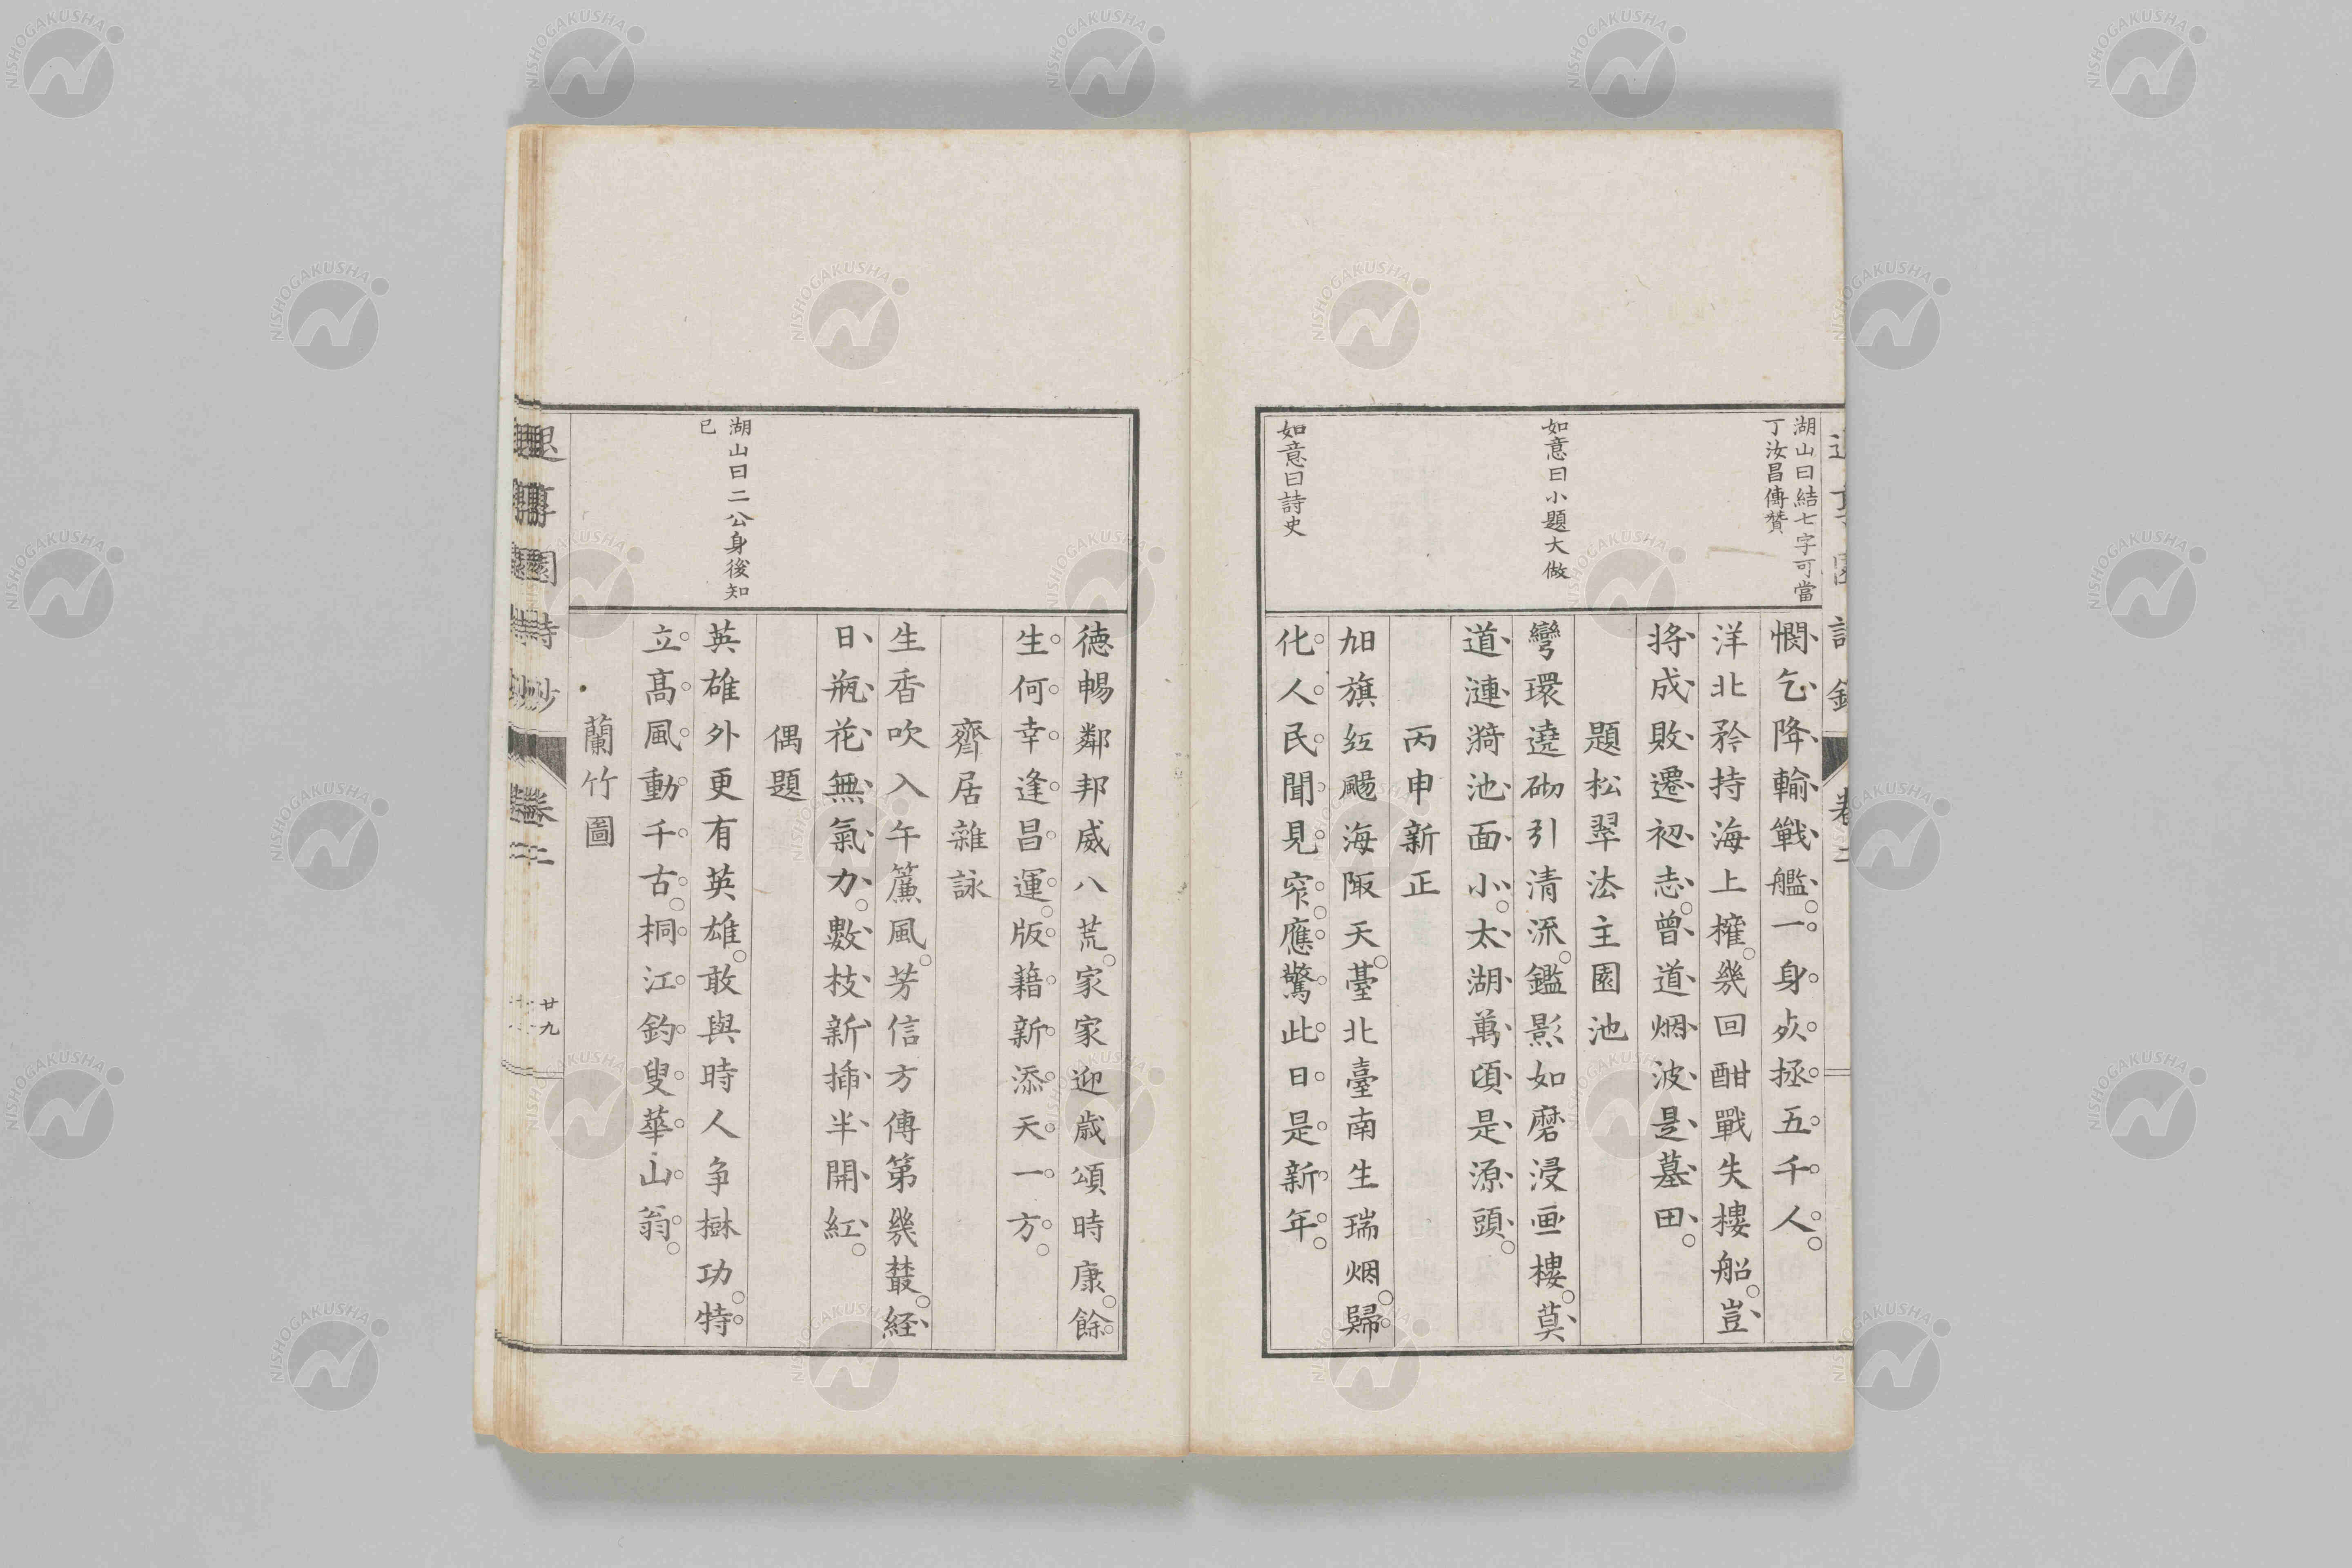 湖山曰結七字可當
丁汝昌傳贊
如意曰小題大做
如意曰詩史
憫乞降輸戰艦一身死拯五千人
洋北矜持海上權幾回酣戰失樓船豈
將成敗遷初志曾道烟波是墓田
題松翠法主園池
彎環遶砌引清流鑑影如磨浸画樓莫
道漣漪池面小太湖萬頃是源頭
丙申新正
旭旗紅颺海陬天臺北臺南生瑞烟歸
化人民聞見窄應驚此日是新年
湖山曰二公身後知
已
德暢鄰邦威八荒家家迎歲頌時康餘
生何幸逢昌運版藉新添天一方
齋居雜詠
生香吹入午簾風芳信方傳第幾叢経
日瓶花無氣力數枝新插半開紅
偶題
英雄外更有英雄敢與時人争樹功特
立高風動千古桐江釣叟華山翁
蘭竹圖
退享園詩鈔
卷二
廿九
NISHOGAKUSHA